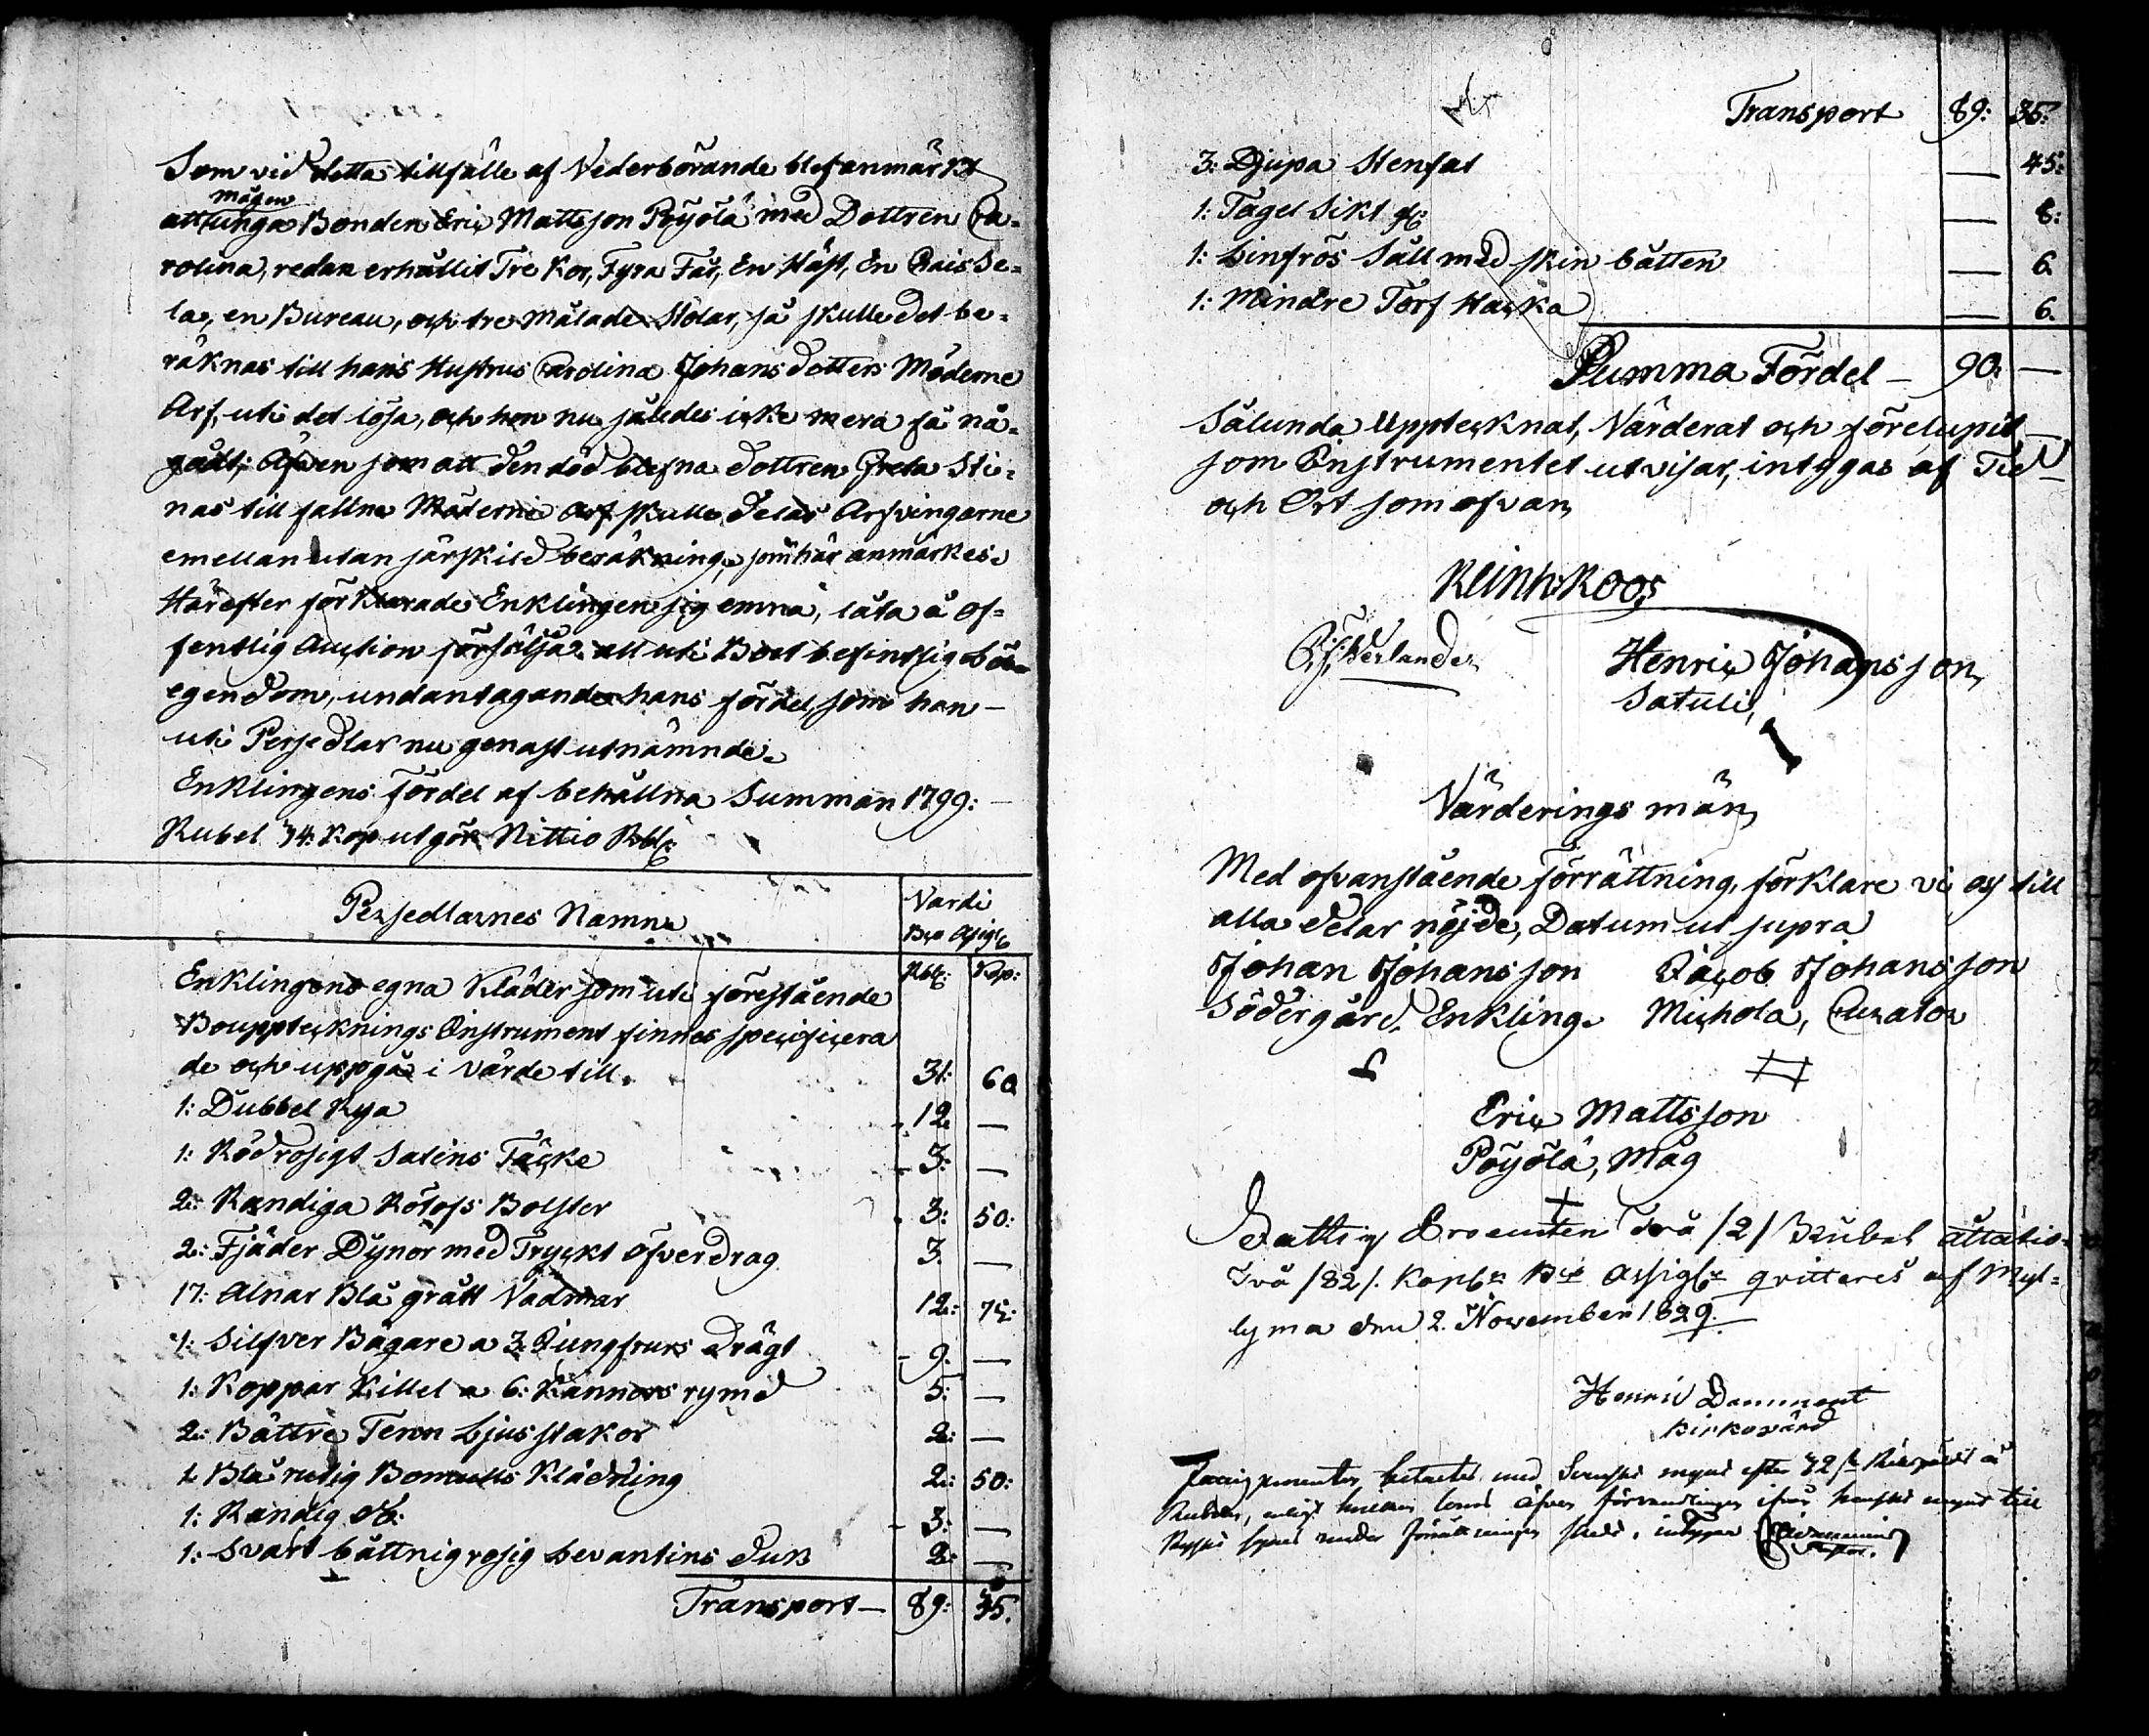 Som vid detta tillfälle af Vederbörande blef anmärkt
mågen
att unga Bonden Eric Mattsson Pöyölä med Dottren Ca-
rolina, redan erhållit Tre Kor, Fyra Får, En Häst, En Chais Se-
la, en Bureau, och tre målade Stolar, så skulle det be-
räknas till hans Hustrus Carolina Johans dotters Möderne
Arf, uti det lösa, och hon nu således icke mera få nå-
godt; Äfven som att den död blefna dottren Greta Sti-
nas till fallne Möderne Arf skulle delas Arfvingarne
emellan utan särskild beräkning, som här anmärkes.
Härefter förklarade Enklingen sig ämna, låta å of-
fentlig Auction försälja all uti Boet befintlig lös
egendom, undantagande hans fördel, som han
uti Persedlar nu genast utnämnde.
Enklingens fördel af behållna Summan 1799:
Rubel 74: Kop utgör Nittio Rbl:
Persedlarnes Namn Värde
Bco Assigr
Rbl: Kop:
Enklingens egna Kläder som uti föreståënde
Boupptecknings Instrument finnes specificera
de och uppgår i värde till. 31: 60
1: Dubbel Rya 12 —
1: Röd rosigt Satins Täcke 3: —
2: Randiga Bolster 3: 50:
2: Fjäder Dynor med Tryckt öfverdrag 3. —
17: Alnar Blå grått Vadmar 12: 75:
1: Silfver Bägare a 3: Jungfrurs drägt 9. —
1: Koppar Kittel a 6: Kannors rymd 5: —
2: Bättre Tenn Ljusstakor 2: —
1. Blå rutig Bomulls Klädning 2: 50:
1: Randig do: 3: —
1: Svart båttnig rosig Levantins duk 2: —
Transport — 89: 35.
Transport 89: 35:
3: Djupa Stenfat — 45:
1: Tagel Sikt — 8:
1: Linfrös Såll med skin båtten — 6.
1: Mindre Torf Hacka — 6.
Summa Fördel — 90. —
Sålunda Upptecknat, Värderat och förelupit,
som Instrumentet utvisar, intygas af Tid
och Ort som ofvan
Reinh: Roos
Henric Johansson
Satuli,
Värderings män
Med ofvanstående förrättning, förklare vi oss till
alla delar nöjde, Datum ut supra
Johan Johansson Jacob Johansson
Södergård. Enkling. Michola, Curator
Eric Mattsson
Pöyölä, Måg
Fattig Procenten två /2/ Rubel åttatio
två /82/. Kop Bco Assigr qvitteres af Myl-
lyma den 2. November 1829.
Henric Damment
Kirkovärd
betaltes med Svenskt mynt efter 72